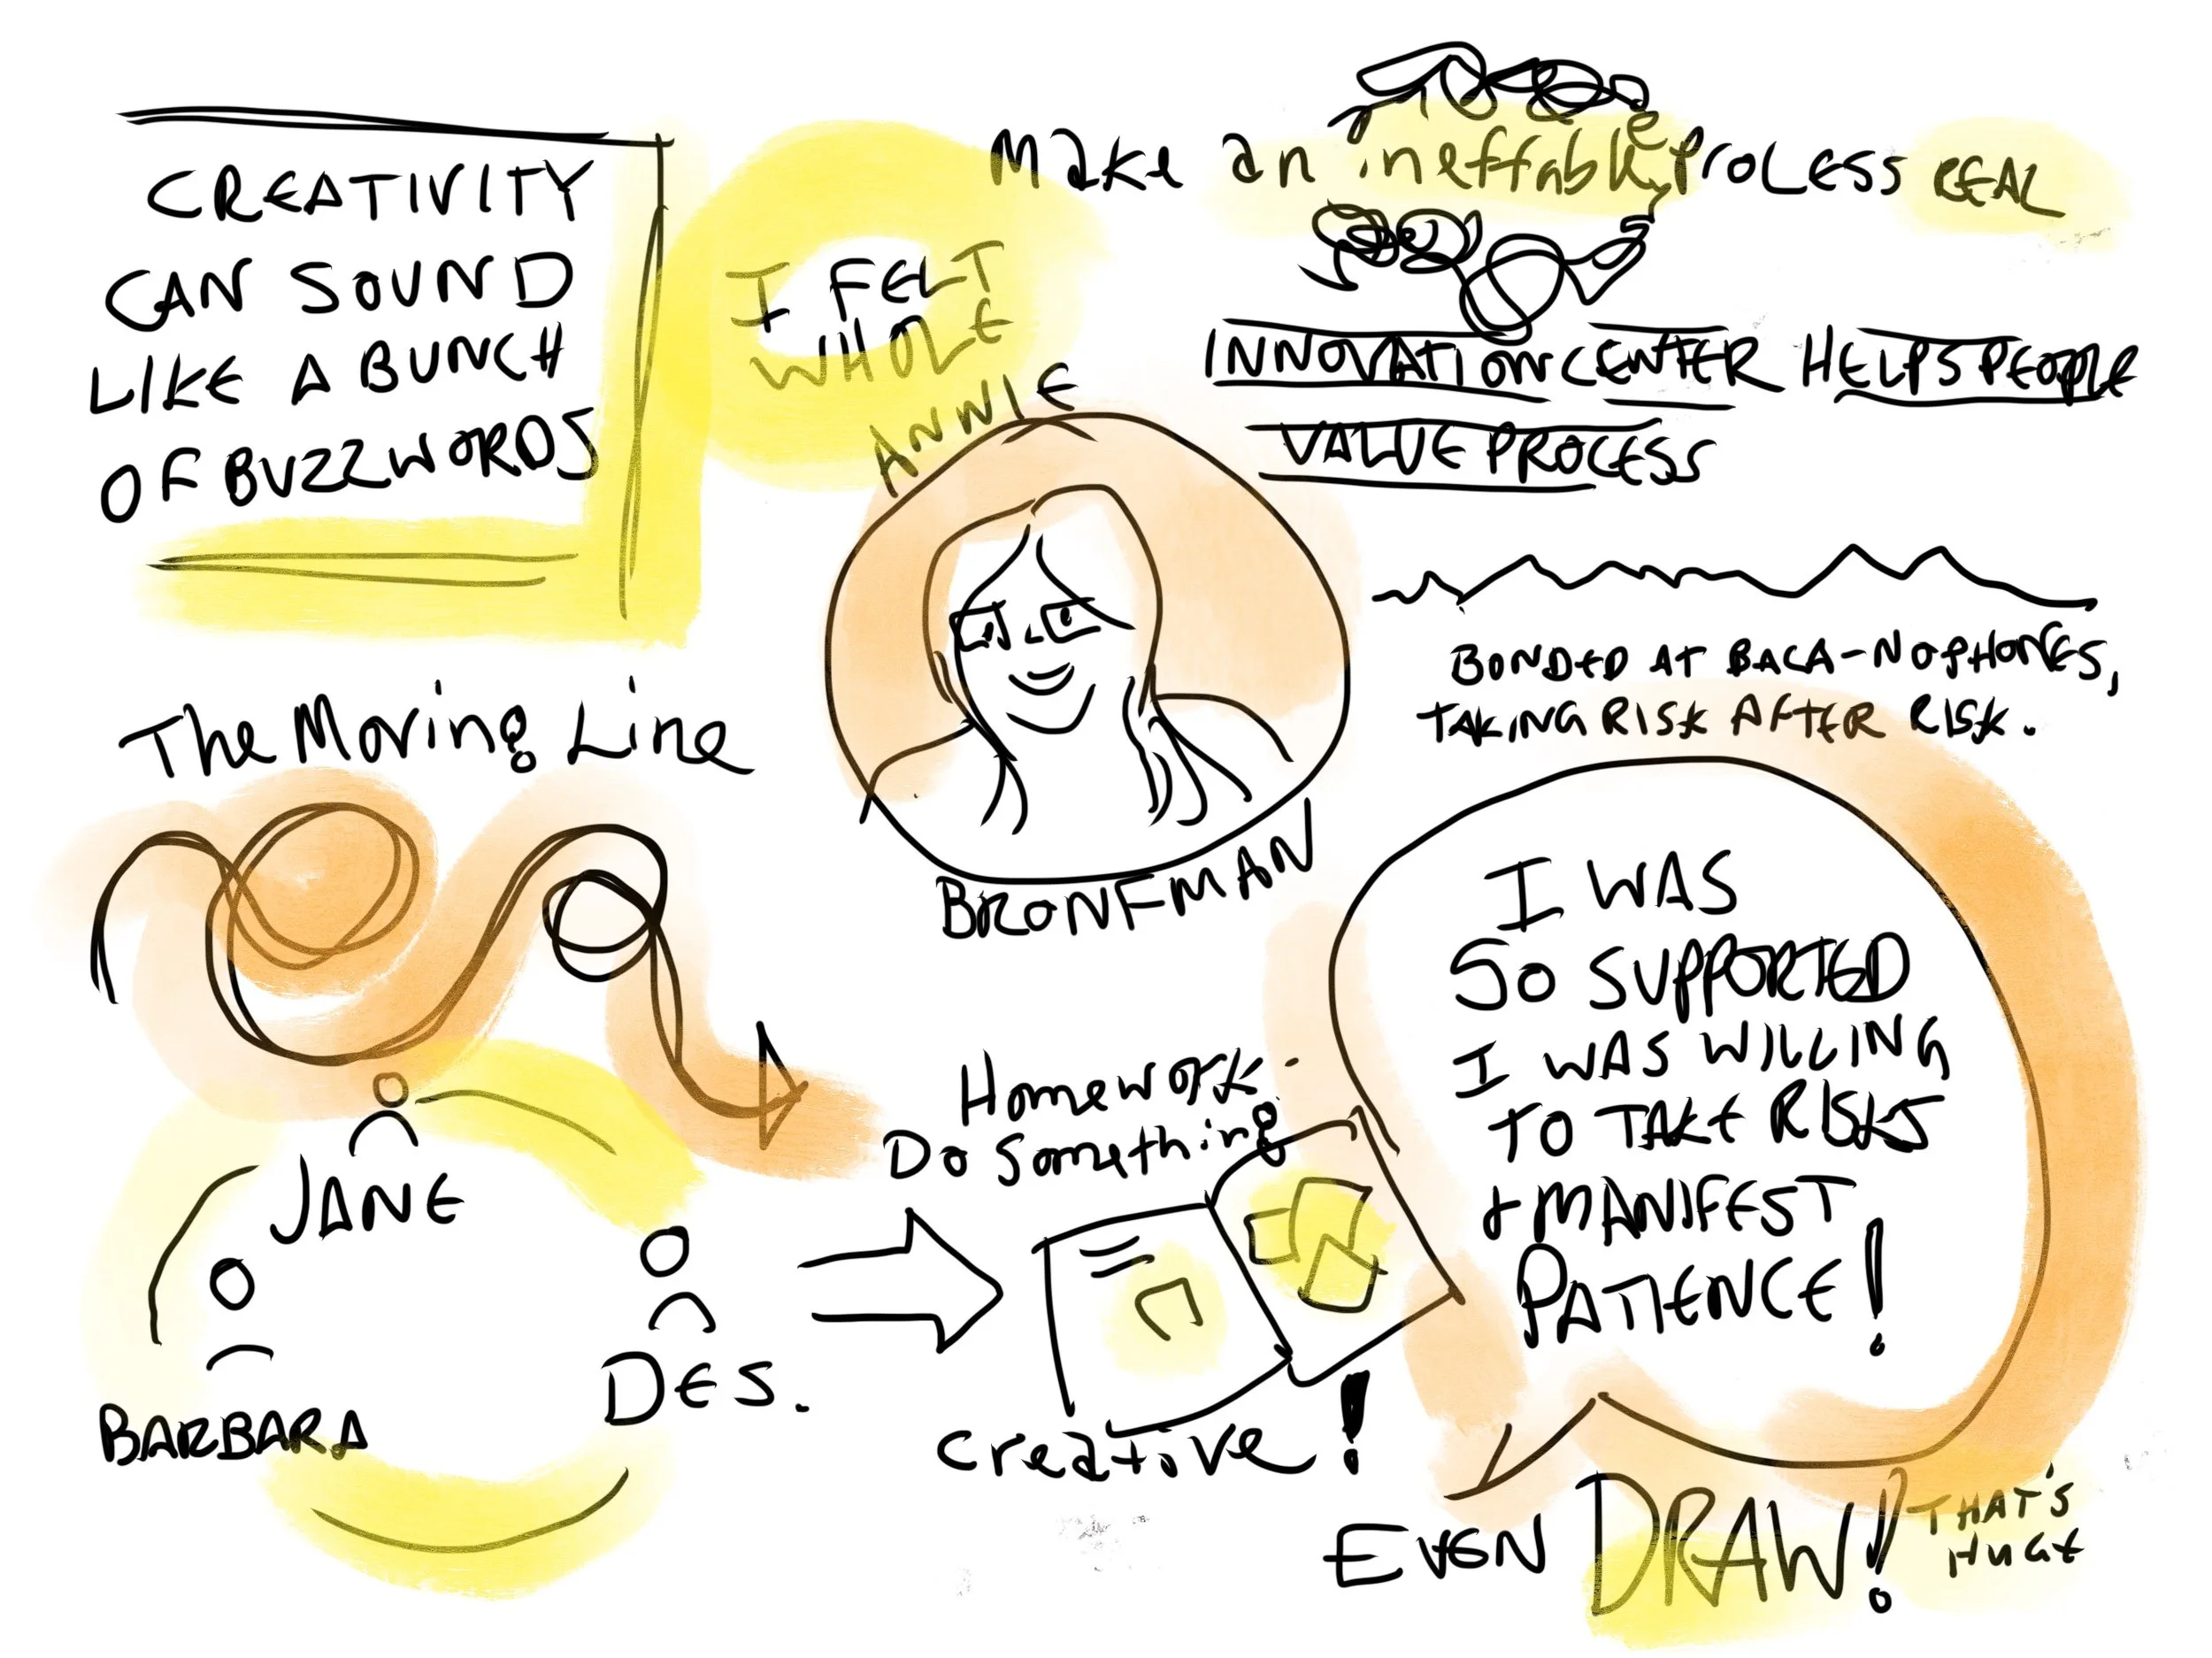 CREATIVITY
CAN SOUND
LIKE A BUNCH
OF BUZZWORDS
I FELT
WHOLE
Make an ineffable process REAL
INNOVATION CENTER HELPS PEOPLE
VALUE PROCESS
ANNIE
BRONFMAN
BONDED AT BACA-NO PHONES,
TAKING RISK AFTER RISK.
The Moving Line
JANE
BARBARA
DES.
Homework-
Do Something
creative!
I WAS
SO SUPPORTED
I WAS WILLING
TO TAKE RISKS
+ MANIFEST
PATIENCE!
EVEN DRAW!
THAT'S
HUGE